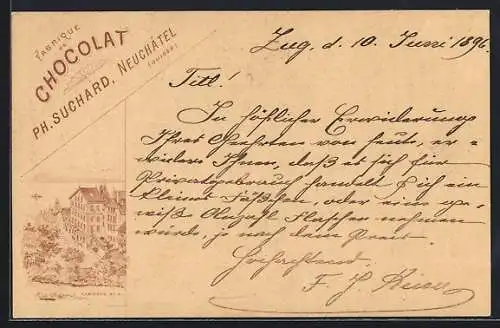 FABRIQUE
DE
CHOCOLAT
PH. SUCHARD, NEUCHÂTEL
(SUISSE)
Zug, d. 10. Juni 1896.
Titl!
In höflicher Erwiderung
Ihres Geehrten von heute, er-
widere Ihnen, daß es sich für
Privatgebrauch handelt & ich ein
kleines Fäßchen, oder eine ge-
wiße Anzahl Flaschen nehmen
würde, je nach dem Preis.
Hochachtend
F. J.